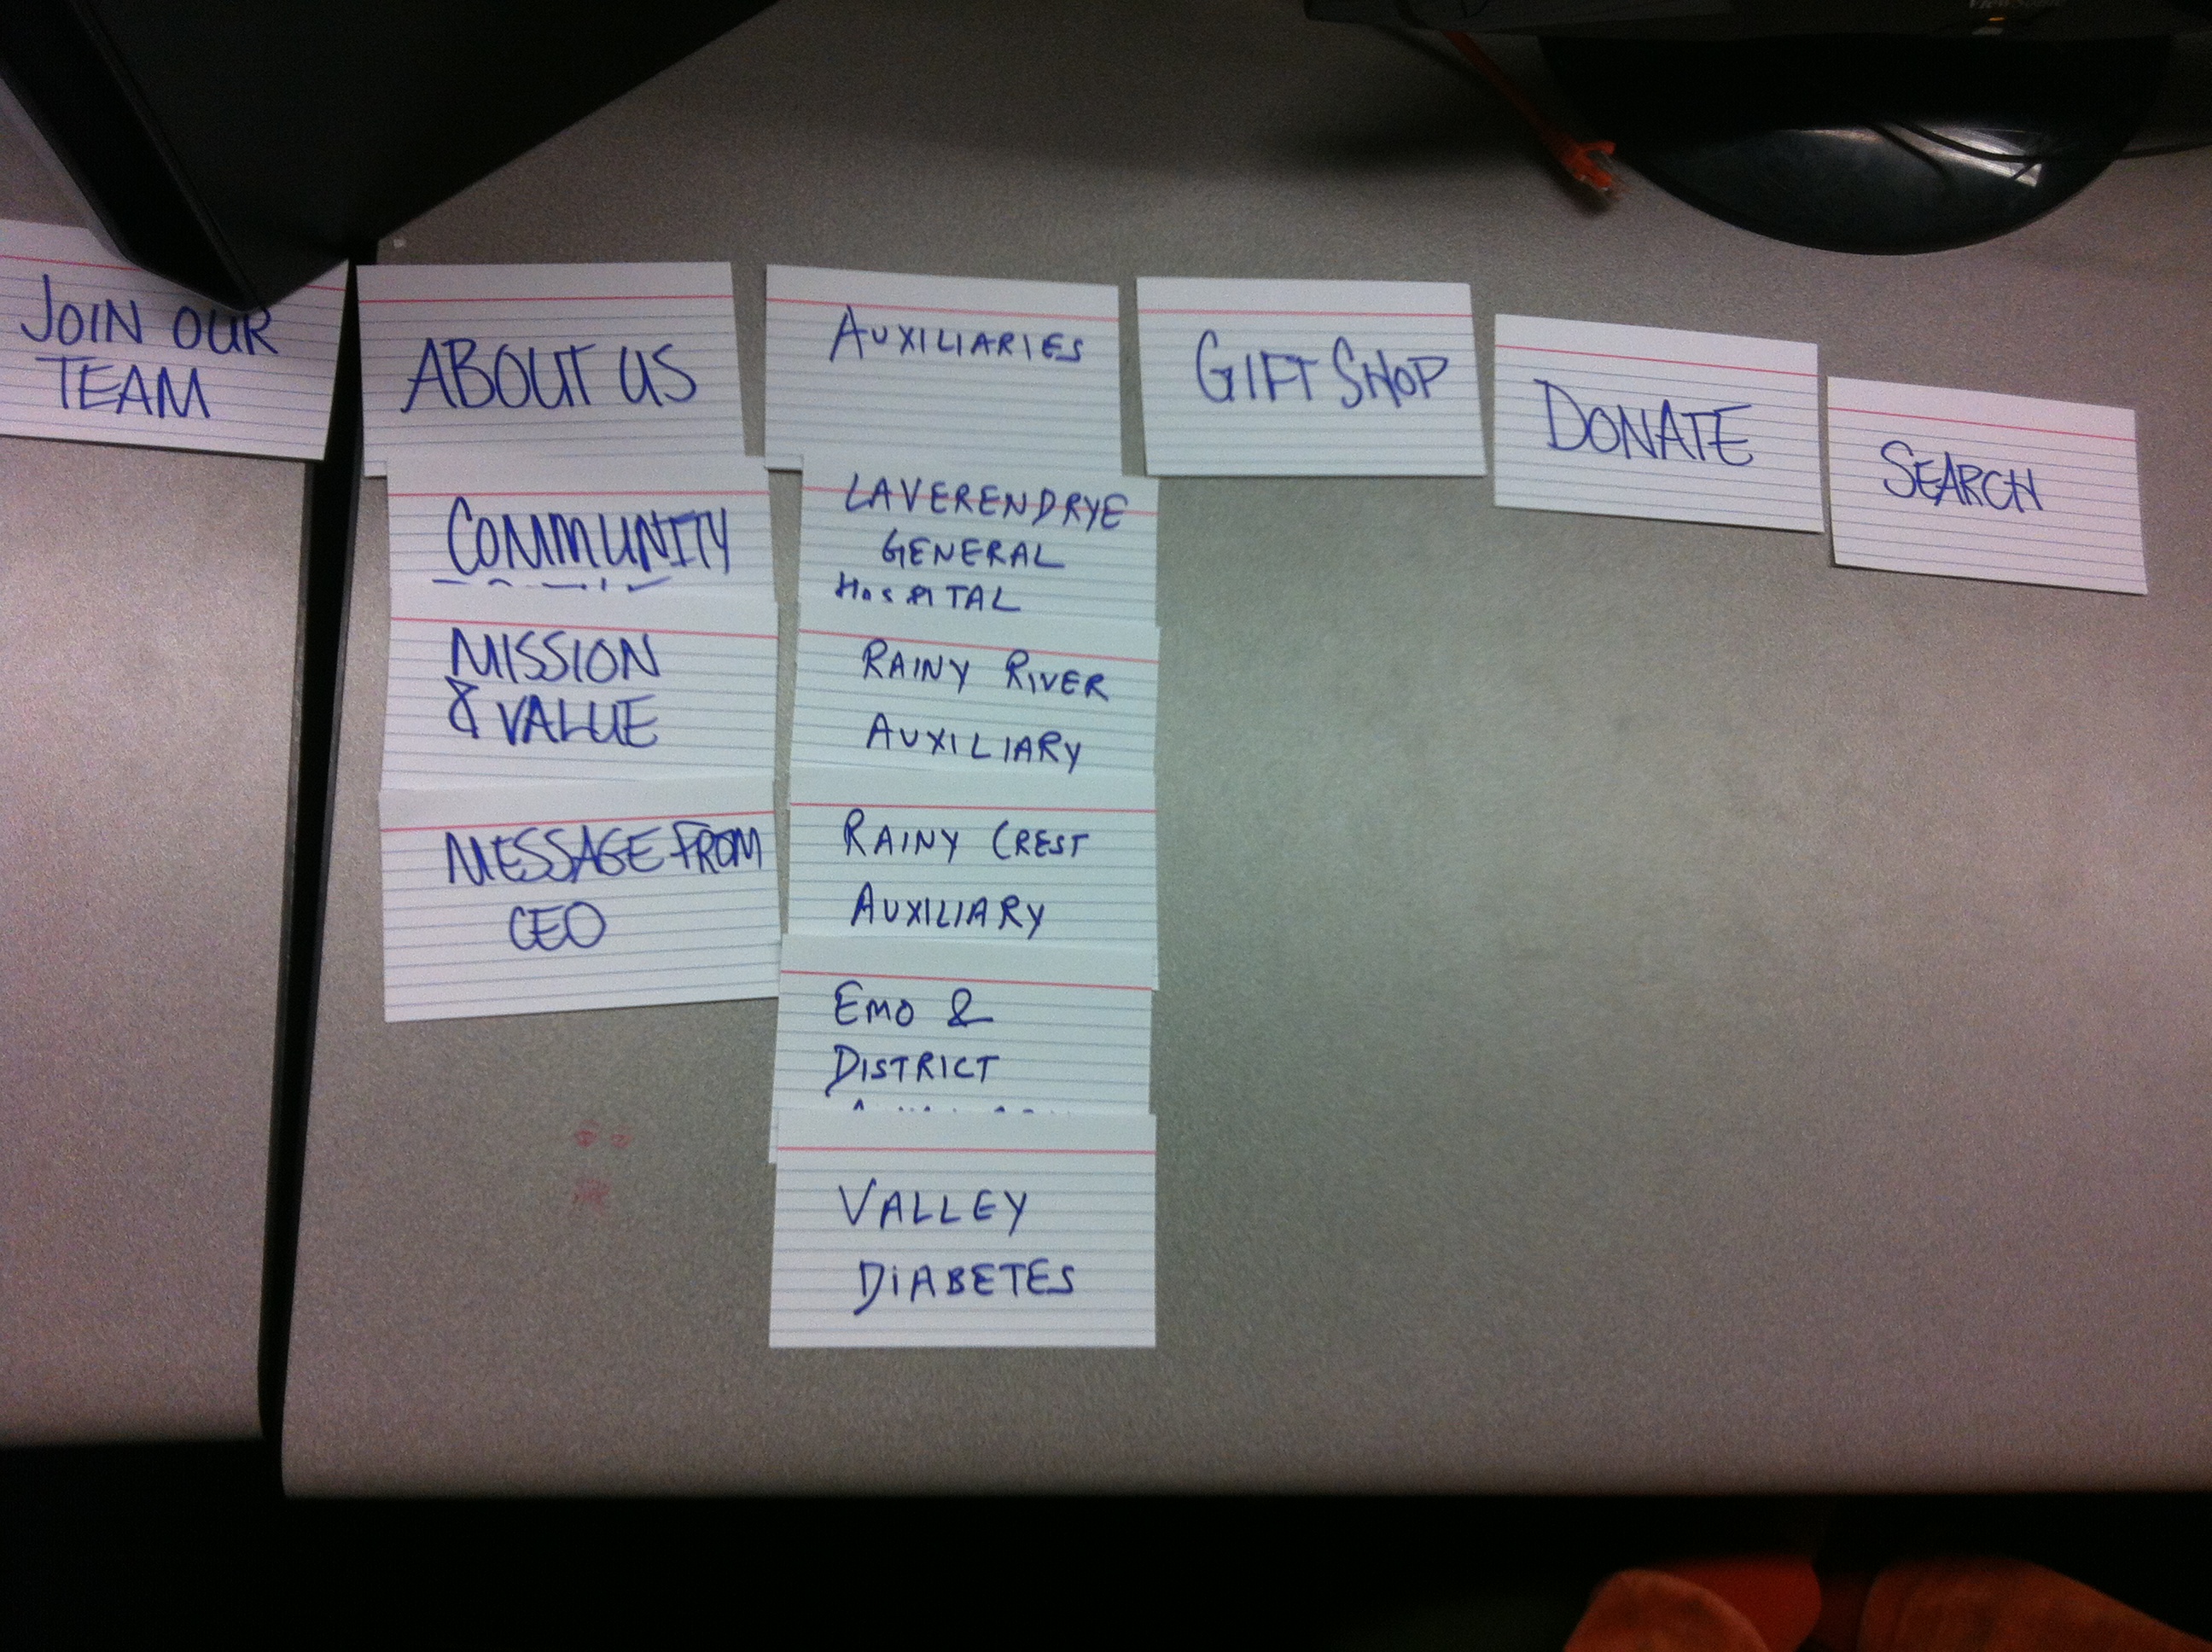 JOIN OUR
TEAM
ABOUT US
COMMUNITY
MISSION
& VALUE
MESSAGE FROM
CEO
AUXILIARIES
LAVERENDRYE
GENERAL
HOSPITAL
RAINY RIVER
AUXILIARY
RAINY CREST
AUXILIARY
EMO &
DISTRICT
VALLEY
DIABETES
GIFT SHOP
DONATE
SEARCH